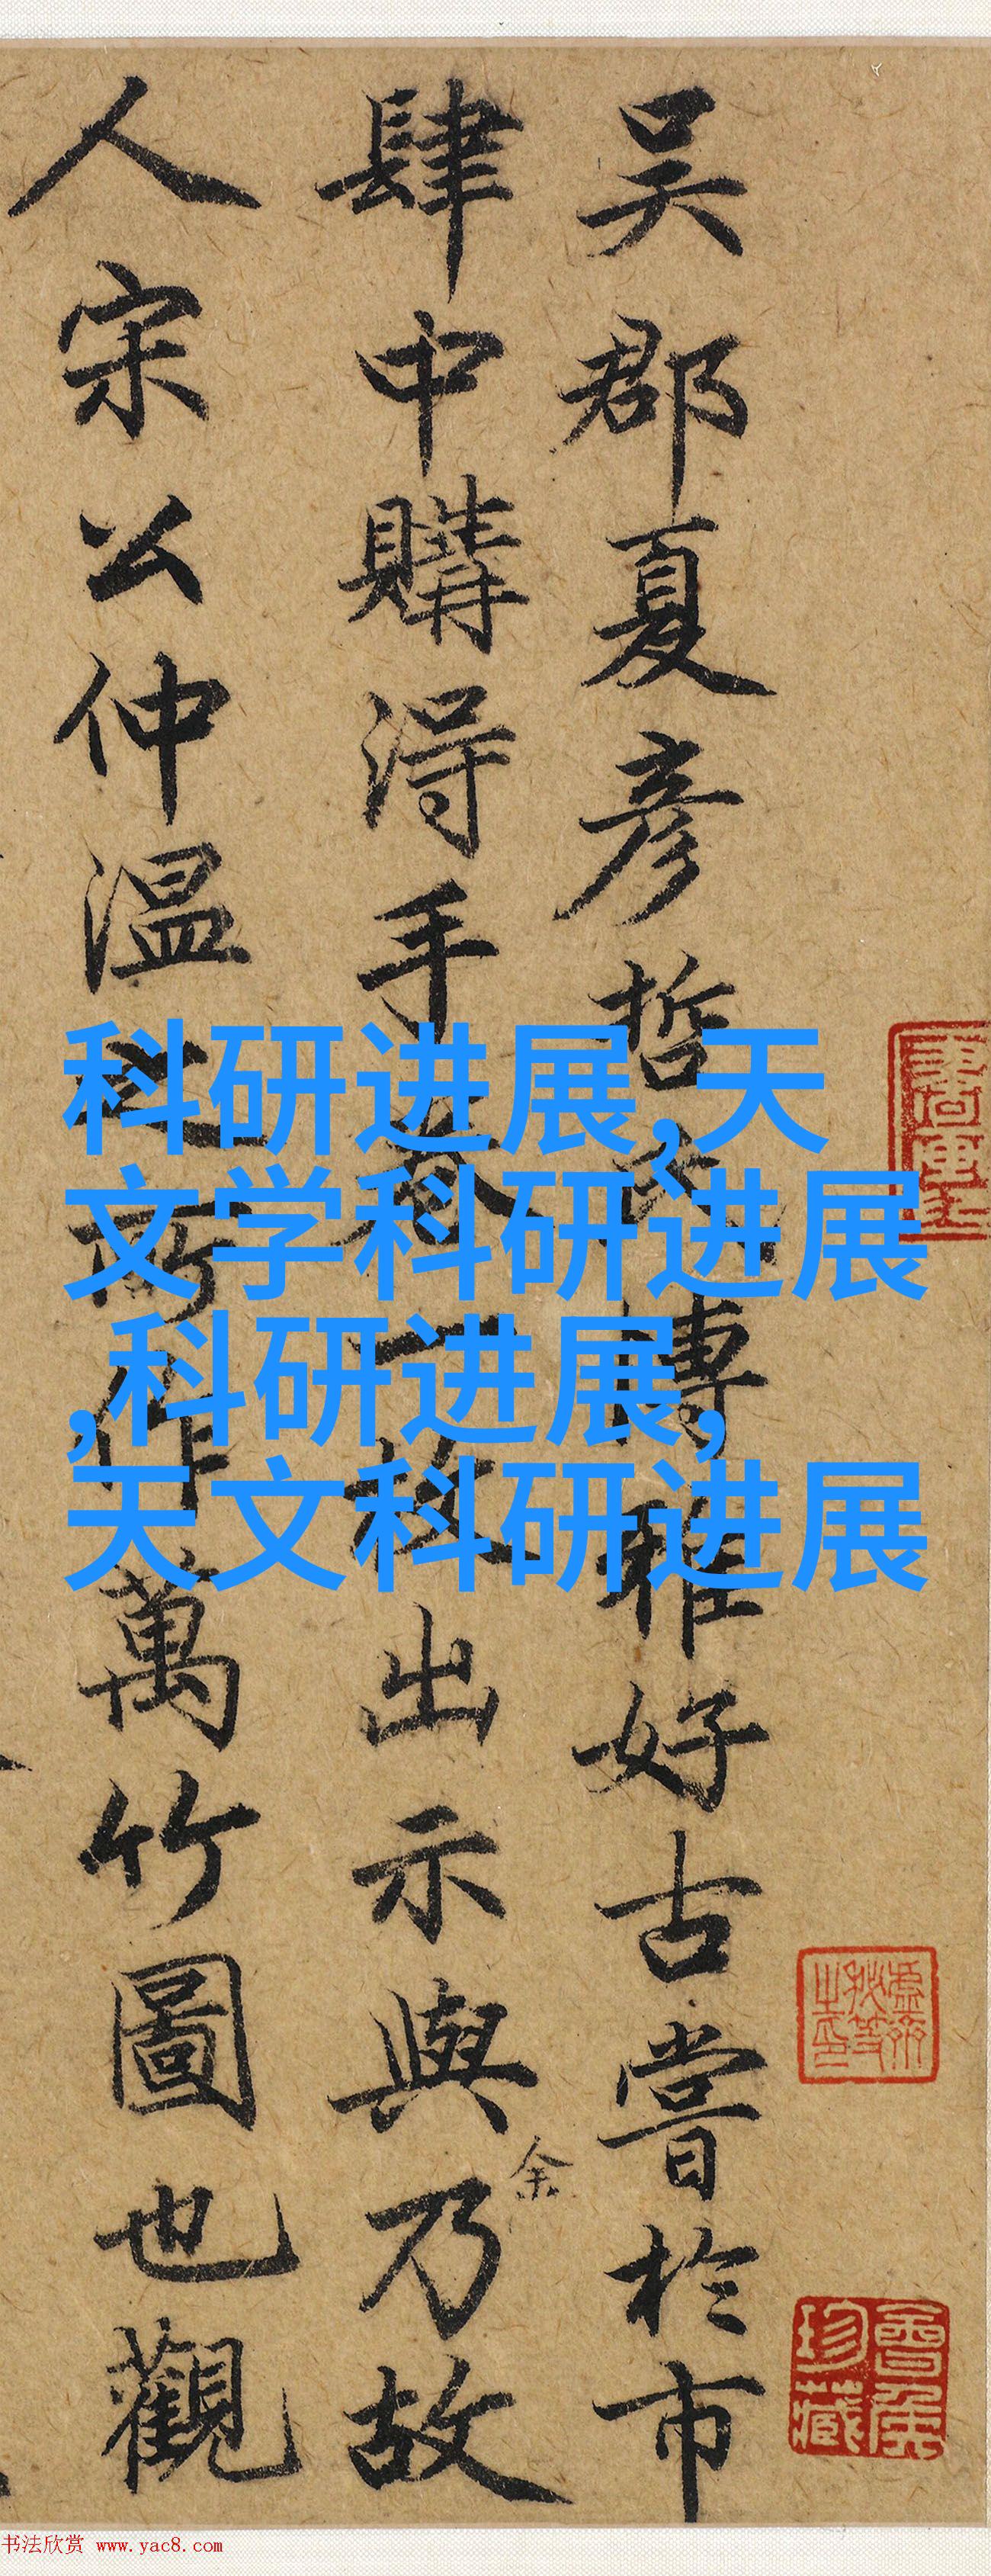 吴郡夏彦哲博雅好古嘗於市
肆中購得手卷一枚出示與余乃故
人宋公仲温之所作萬竹圖也觀
科研进展,天
文学科研进展
,科研进展,
天文科研进展
书法欣赏 www.yac8.com